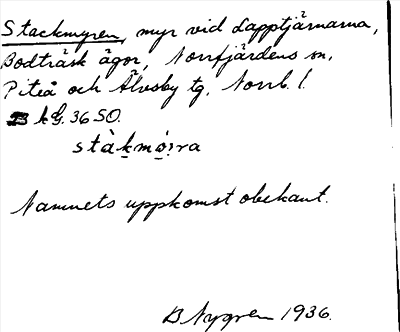 Stackmyren, myr vid Lapptjärnarna,
Bodträsk ägor, Norrfjärdens sn,
Piteå och Älvsby tg. Norrb. l.
B kg. 36 SO.
stàkmó̤ra
Namnets uppkomst obekant.
B Nygren 1936.